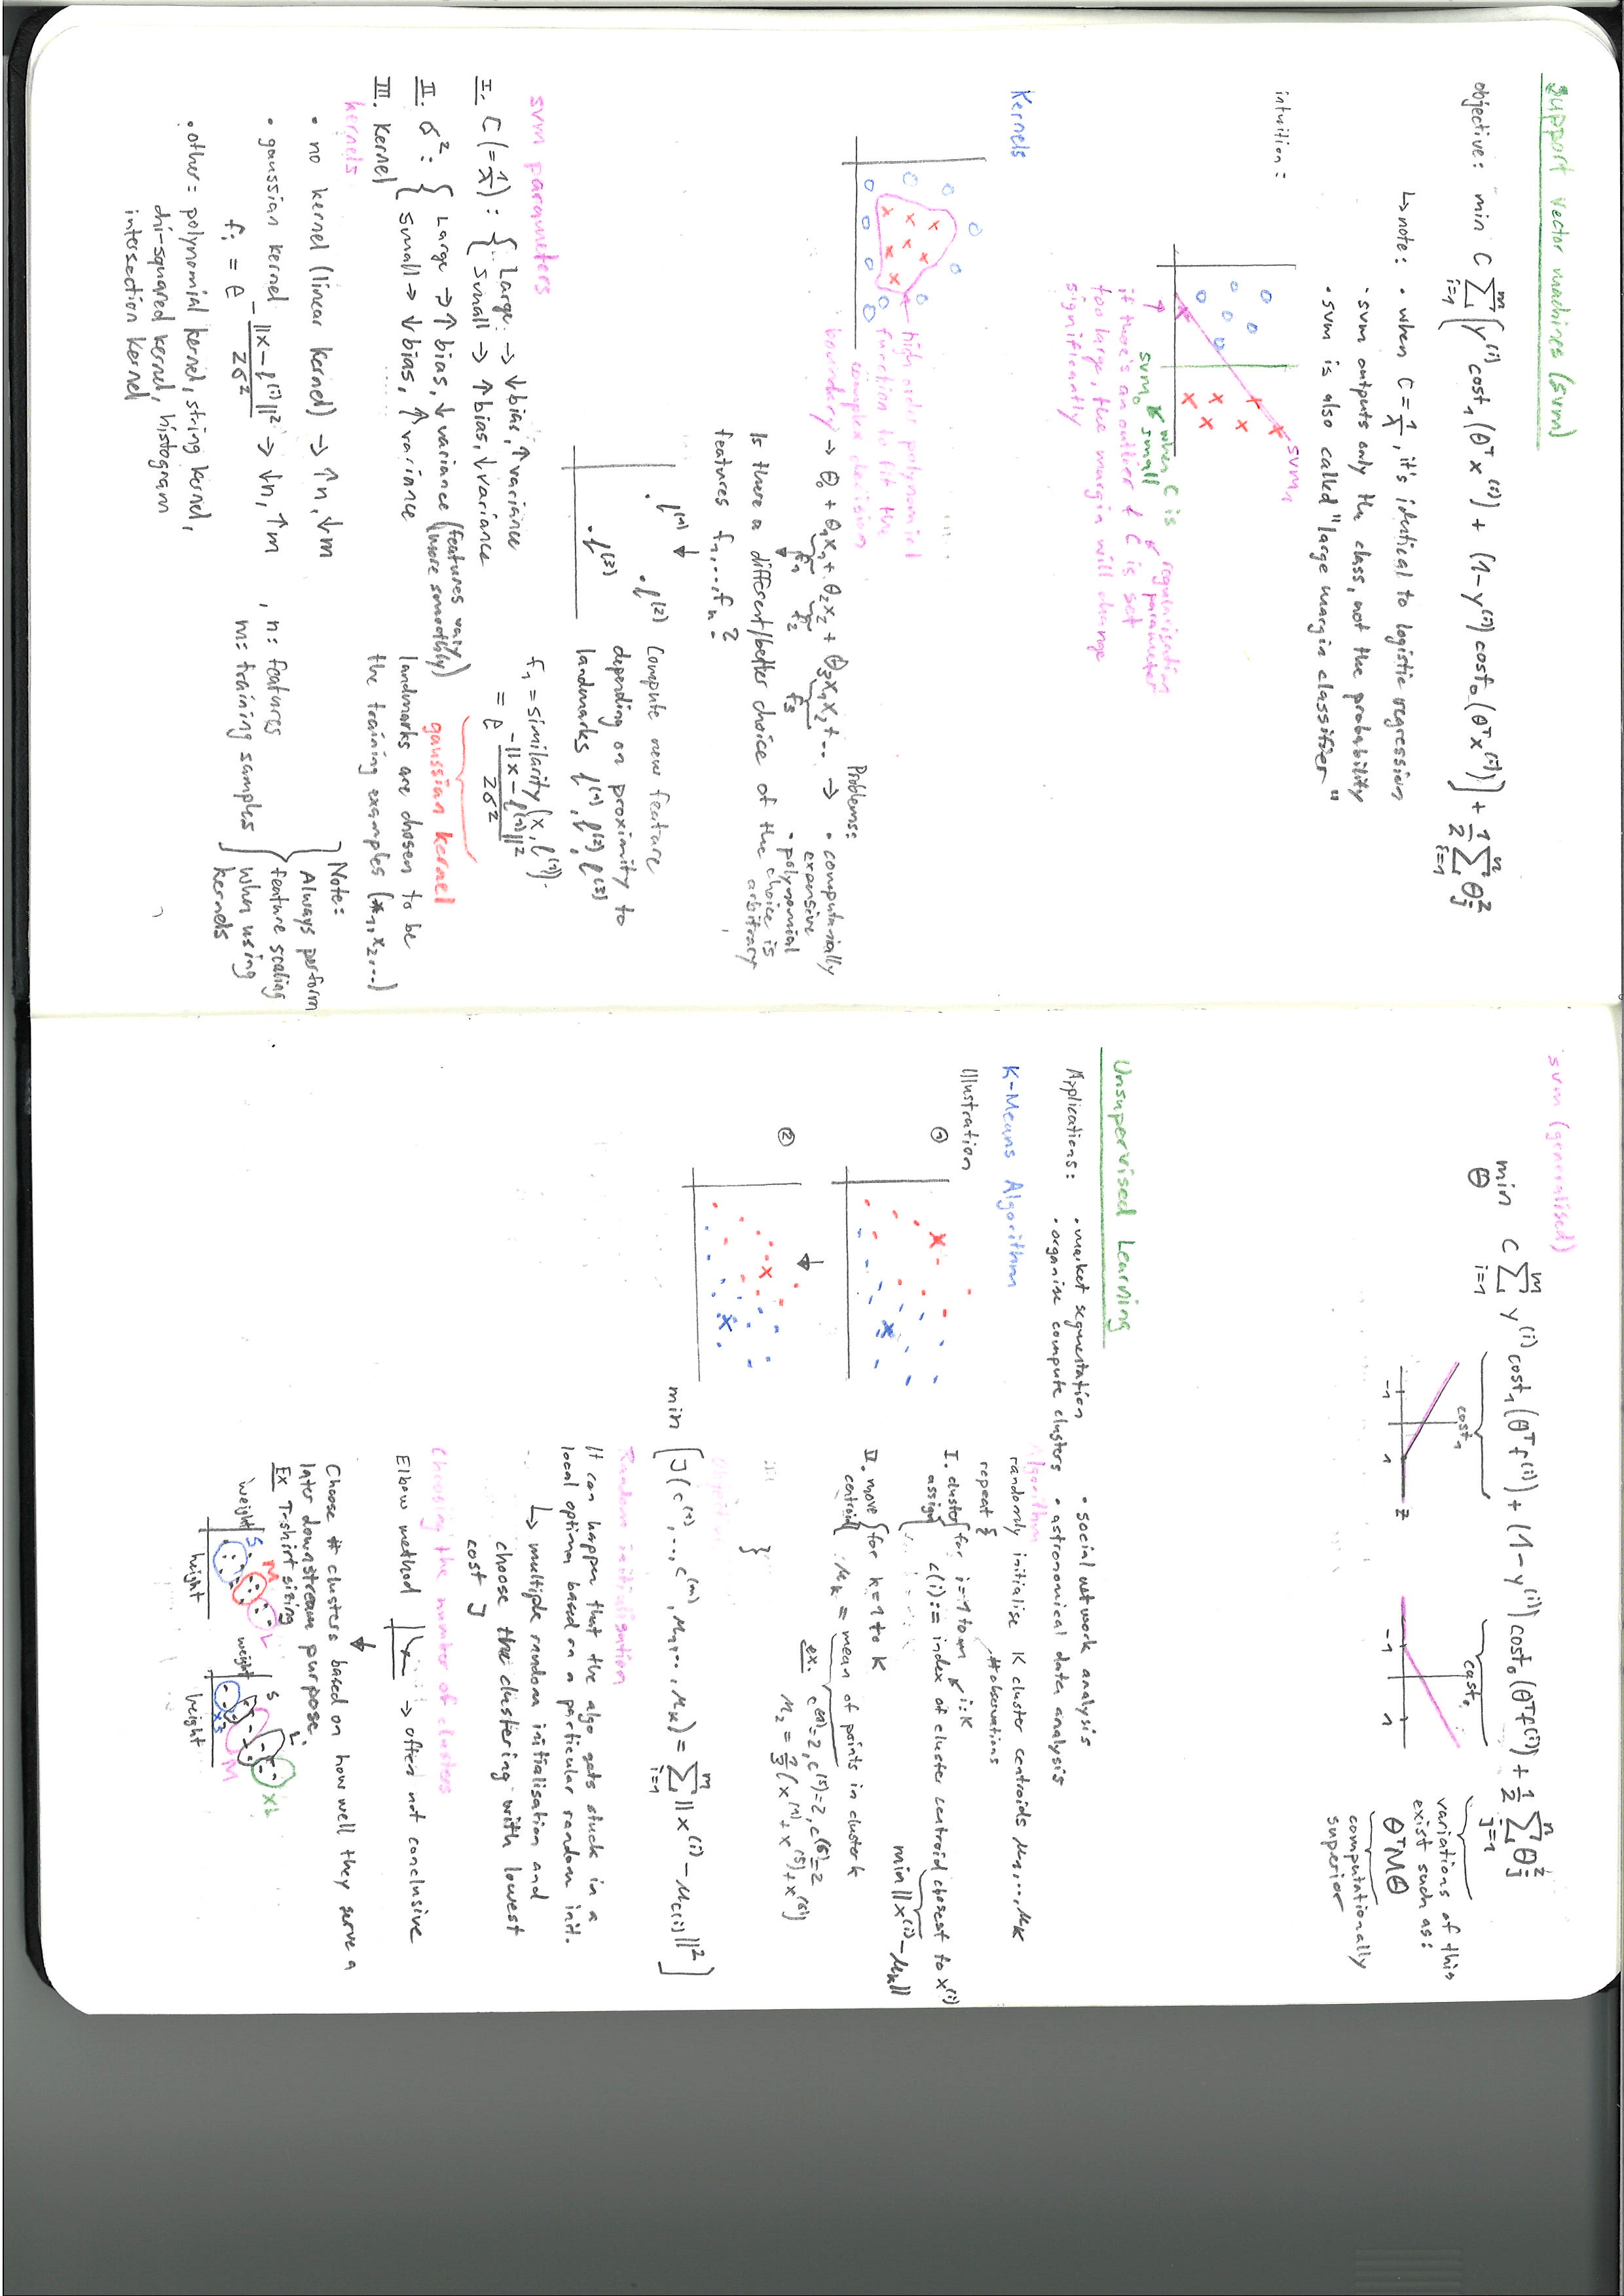 Support vector machines (svm)
objective: min C Σ_{i=1}^{m} [y^(i) cost₁(θᵀx^(i)) + (1-y^(i)) cost₀(θᵀx^(i))] + 1/2 Σ_{i=1}^{n} θ_j²
↳ note: • when C = 1/λ, it's identical to logistic regression
• svm outputs only the class, not the probability
• svm is also called "large margin classifier"
intuition:
svm₁
svm₀ when C is small
regularisation parameter
if there's an outlier & C is set
too large, the margin will change
significantly
Kernels
high order polynomial
function to fit the
complex decision
boundary → θ₀ + θ₁x₁ + θ₂x₂ + θ₃x₁x₂ + .. →
f₁ f₂ f₃
Problems:
• computanially
expensive
• polynomial
choice is
arbitrary
Is there a different/better choice of the
features f₁,..,fₙ?
l^(1)
l^(2)
l^(3)
Compute new feature
depending on proximity to
landmarks l^(1), l^(2), l^(3)
f₁ = similarity(x, l^(1))
= e^(-||x-l^(1)||²/2σ²)
gaussian kernel
landmarks are chosen to be
the training examples (x₁, x₂,...)
svm parameters
I. C (= 1/λ): { Large → ↓bias, ↑variance
Small → ↑bias, ↓variance
II. σ²: { Large → ↑ bias, ↓ variance (features vary more smoothly)
Small → ↓ bias, ↑ variance
III. Kernel
kernels
• no kernel (linear kernel) → ↑n, ↓m
• gaussian kernel → ↓n, ↑m
f_i = e^(-||x-l^(i)||²/2σ²)
, n: features
m: training samples
Note:
Always perform
feature scaling
when using
kernels
• other: polynomial kernel, string kernel,
chi-squared kernel, histogram
intersection kernel
svm (generalised)
min θ C Σ_{i=1}^{m} y^(i) cost₁(θᵀf^(i)) + (1-y^(i)) cost₀(θᵀf^(i)) + 1/2 Σ_{j=1}^{n} θ_j²
cost₁
-1 1 z
cost₀
-1 1
variations of this
exist such as:
θᵀMθ
computationally
superior
Unsupervised Learning
Applications: • market segmentation • social network analysis
• organise compute clusters • astronomical data analysis
K-Means Algorithm
Illustration
①
②
Algorithm
randomly initialise K cluster centroids μ₁,..,μ_K
repeat {
# observations
I. cluster assign { for i=1 to m i:K
c(i) := index of cluster centroid closest to x^(i)
min ||x^(i) - μ_k||
II. move centroid { for k=1 to K
μ_k = mean of points in cluster k
ex. c^(1)=2, c^(5)=2, c^(6)=2
μ₂ = 1/3 (x^(1) + x^(5) + x^(6))
}
Objective
min [J(c^(1),..,c^(m), μ₁,.., μ_K) = Σ_{i=1}^{m} ||x^(i) - μ_c(i)||²]
Random initialisation
It can happen that the algo gets stuck in a
local optima based on a particular random init.
↳ multiple random initialisation and
choose the clustering with lowest
cost J
Choosing the number of clusters
Elbow method → often not conclusive
Choose # clusters based on how well they serve a
later downstream purpose.
Ex T-shirt sizing
weight
S M L
height
weight
XS S M L XL
height